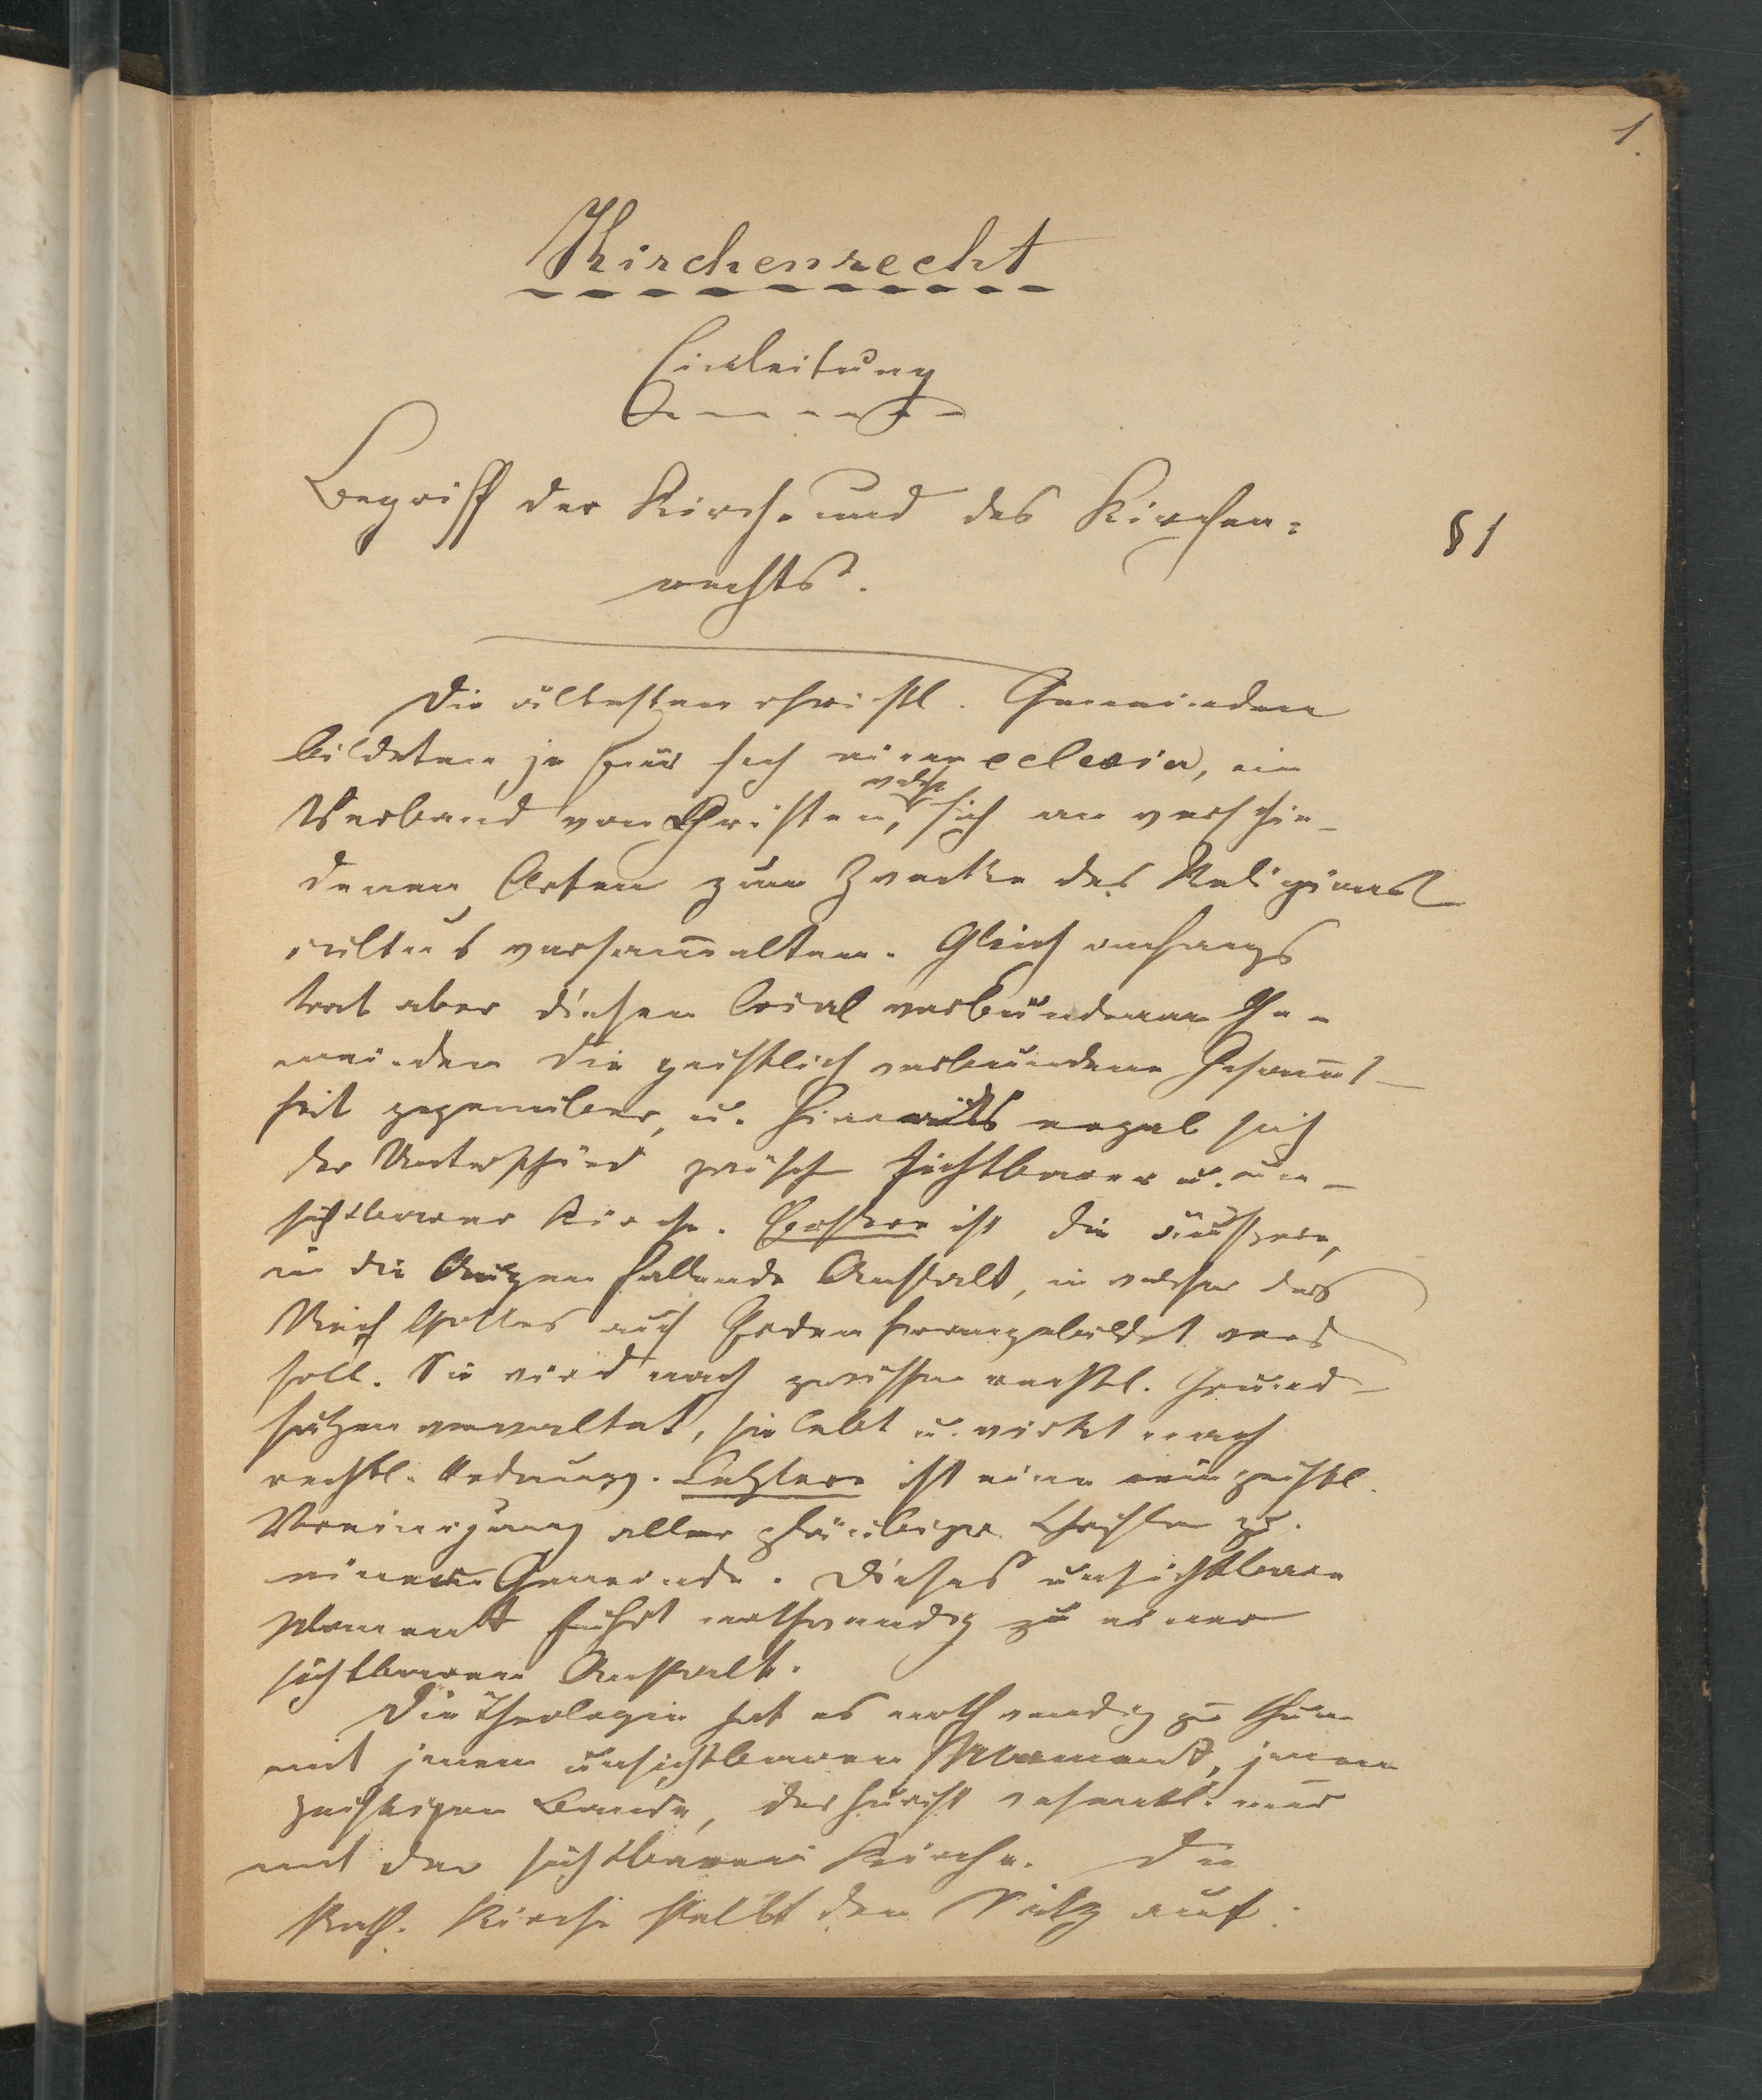 1.
Kirchenrecht
Einleitung
Begriff der Kirche und des Kirchen=
rechts.
§ 1
Die ältesten christl. Gemeinden
bildeten je für sich eine eclesia, ein
Verband von Christen, welche sich an verschie-
denen Orten zum Zwecke des Religions
cultus versam̅elten. Gleich anfangs
trat aber diesen local verbundenen Ge-
meinden die geistlich verbundene Gesam̅t-
heit gegenüber, u. hieraus ergab sich
der Unterschied zwisch sichtbarer u. un-
sichtbarer Kirche. Erstere ist die äußere,
in die Augen fallende Anstalt, in welcher das
Reich Gottes auf Erden herangebildet werd
soll. Sie wird nach gewissen rechtl. Grund-
sätzen verwaltet, sie lebt u. wirkt nach
rechtl. Ordnung. Letztere ist eine rein geistl.
Vereinigung aller gläubigen Christen zu
einer Gemeinde. Dieses unsichtbare
Moment führt nothwendig zu einer
sichtbaren Anstalt.
Die Theologie hat es nothwendig zu thun
mit jenem unsichtbaren Moment, jenem
geistigen Bande, der Jurist wesentl. nur
mit der sichtbaren Kirche. Die
kath. Kirche stellt den Satz auf: